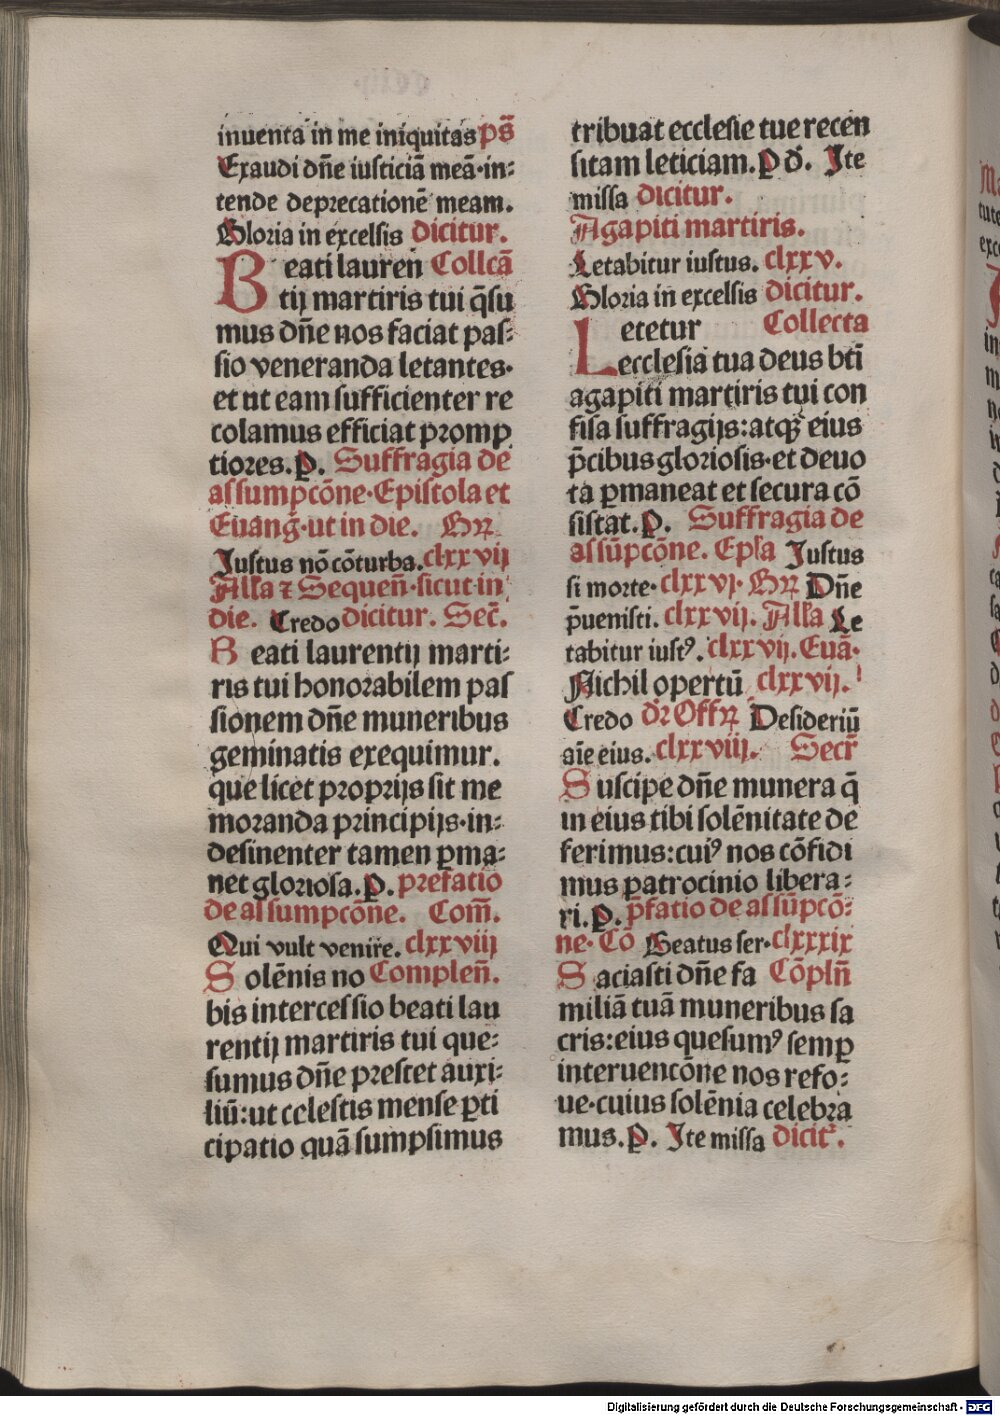 inuenta in me iniquitas ps̄
Exaudi dn̄e iusticiā meā·in⸗
tende deprecationē meam.
Gloria in excelsis dicitur.
Beati lauren Collcā
tij martiris tui q̄su
mus dn̄e nos faciat pas⸗
sio veneranda letantes·
et ut eam sufficienter re
colamus efficiat promp
tiores.ꝑ. Suffragia de
assumpcōne·Epistola et
Euang̃·ut in die. Grꝝ
Justus nō cōturba.clxxvij
All̄a ⁊ Sequen̄·sicut in
die. Credo dicitur. Sec̄.
Beati laurentij marti⸗
ris tui honorabilem pas
sionem dn̄e muneribus
geminatis exequimur.
que licet proprijs sit me
moranda principijs·in⸗
desinenter tamen ꝑma⸗
net gloriosa.ꝑ. prefatio
de assumpcōne. Com̄.
Qui vult venire.clxxviij
Solēnis no Complen̄.
bis intercessio beati lau
rentij martiris tui que⸗
sumus dn̄e prestet auxi⸗
liū:ut celestis mense ꝑti
cipatio quā sumpsimus
tribuat ecclesie tue recen
sitam leticiam.ꝑ d̄. Jte
missa dicitur.
Agapiti martiris.
Letabitur iustus. clxxv.
Gloria in excelsis dicitur.
Letetur Collecta
ecclesia tua deus bt̄i
agapiti martiris tui con
fisa suffragijs:atqꝫ eius
p̄cibus gloriosis·et deuo
ta ꝑmaneat et secura cō
sistat.ꝑ. Suffragia de
assūpcōne. Epl̄a Justus
si morte·clxxvj·Grꝝ Dn̄e
p̄uenisti. clxxvij. All̄a Le
tabitur iustꝰ. clxxvij.Euā·
Nichil opertū clxxvij.
Credo dr̄ Offꝝ Desideriū
aīe eius.clxxviij. Secr̄
Suscipe dn̄e munera q̄
in eius tibi solēnitate de
ferimus:cuiꝰ nos cōfidi
mus patrocinio libera⸗
ri.ꝑ. p̄fatio de assūpcō⸗
ne·Cō Beatus ser·clxxxix
Saciasti dn̄e fa Cōpln̄
miliā tuā muneribus sa
cris:eius quesumꝰ semꝑ
interuencōne nos refo⸗
ue·cuius solēnia celebra
mus.ꝑ. Jte missa dicitᷣ.
Digitalisierung gefördert durch die Deutsche Forschungsgemeinschaft - DFG